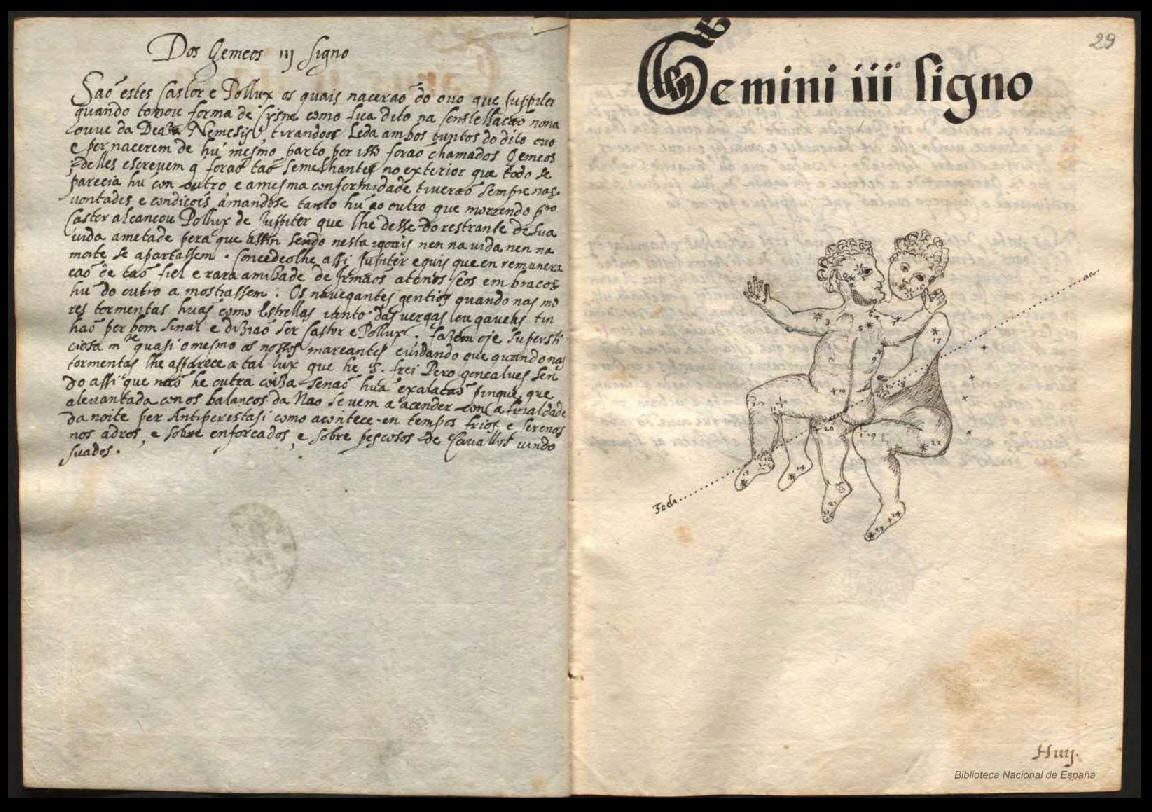 Dos Gemeos iij signo
Saõ estes Castor e Pollux os quais naceraõ do ovo que Juppiter
quando tomou forma de Cysne como fica dito na constellaçaõ nona
ouve da Nemesis, tirandoos Leda ambos juntos do dito ovo
e per nacerem de hũ mesmo parto por isso foraõ chamados Gemeos
delles escrevem q foraõ taõ semelhantes no exterior que todo se
parecia hu con outro e a mesma conformidade tiveraõ sempre nas
vontades, e amandose tanto hũ ao outro que morrendo
Castor alcançou Pollux de Juppiter que lhe desse do restante de sua
vida ametade pera que assi sendo nesta nen na vida nen na
morte se apartassem. Concedeolhe assi Jupiter e quis que en remunera
çaõ de taõ fiel e rara amizade de Irmãos a ceos em braços
hũ do outro a mostrassem. Os navegantes gentios quando nas mo
res tormentas huas como estrellas das vergas tin
haõ per bom sinal e diziaõ ser Castor e Pollux. Fazem oje supersti
ciosam.te quasi o mesmo os nossos mareantes cuidando que quando nas
tormentas lhe apparece a tal lux que he S. frei Pero Gonçalves sen
do assi que não he outra cousa senaõ hũa exalaçaõ pingue, que
alevantada con os balanços da Nao se vem a acender con a frialdade
da noite per Antiperistasi como acontece en tempos frios, e serenos
nos adros, e sobre enforcados, e sobre pescoços de cavallos vindo
suados.
29
Gemini iii signo
Biblioteca Nacional de España